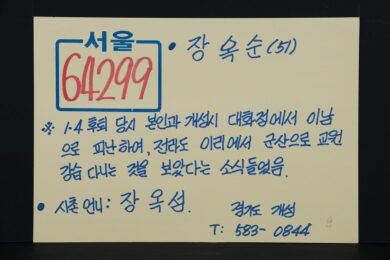 서울
64299
• 장옥순 (51)
※ 1.4 후퇴 당시 본인과 개성시 대화정에서 이남
으로 피난하여, 전라도 이리에서 군산으로 교원
강습 다니는 것을 보았다는 소식들었음.
• 사촌언니: 장옥섬.
경기도 개성
T: 583-0844